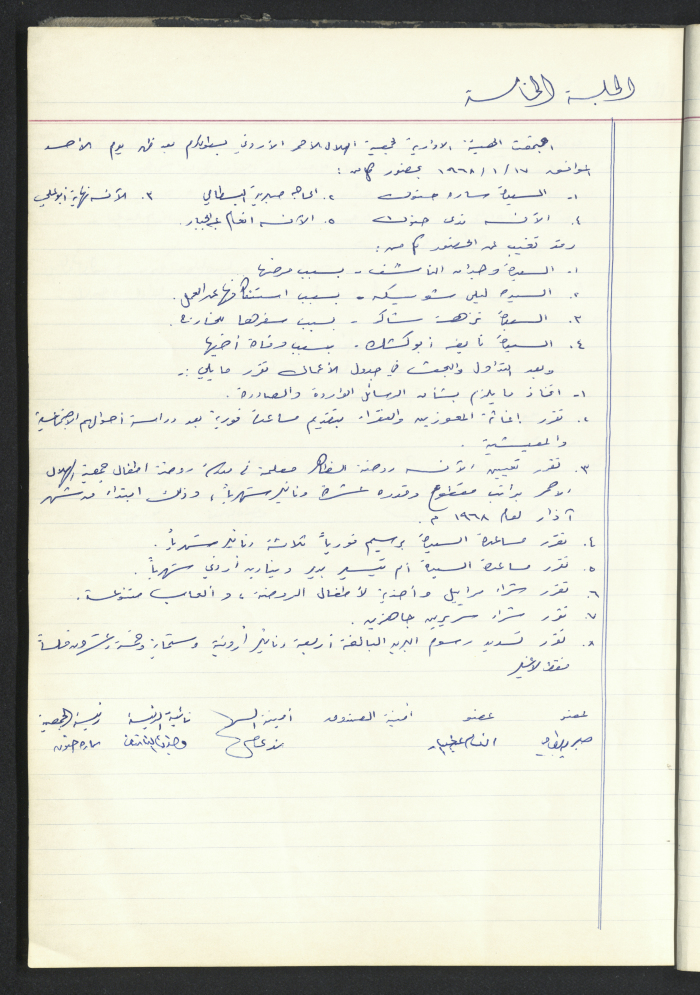 الجلسة الخامسة
اجتمعت الهيئة الادارية لجمعية الهلال الاحمر الأردني بطولكرم بعد ظهر يوم الأحد
الموافق ١٩٦٨/١/١٧ بحضور كل من :
١- السيدة ساره حنون ٢. الحاجة صبرية ٣. الآنسة نهاية
٤. الآنسه ندى حنون ٥. الآنسه انعام عبد الجبار.
وقد تغيب عن الحضور كل من :
١- السيدة وجدان الناشف - بسبب مرضها
٢. السيدة ليلى شويكه - بسبب استنكافها عن العمل.
٣. السيدة نزهت شاكر - بسبب سفرها للخارج.
٤. السيدة نايفه أبو كشك - بسبب وفاة أخيها
وبعد التداول والبحث في جدول الأعمال تقرر ما يلي :-
١- اتخاذ ما يلزم بشأن الرسائل الواردة والصادرة.
٢. تقرر إغاثة المعوزين والفقراء بتقديم مساعدة فورية بعد دراسة أحوالهم الاجتماعية
والمعيشية.
٣. تقرر تعيين الآنسه روضة معلمة في روضة اطفال جمعية الهلال
الاحمر براتب مقطوع وقدره عشرة دنانير شهرياً، وذلك ابتداء من شهر
آذار لعام ١٩٦٨ م.
٤. تقرر مساعدة السيدة فورياً ثلاثة دنانير شهرياً.
٥. تقرر مساعدة السيدة أم تيسير دينارين أردني شهرياً.
٦. تقرر شراء مراييل وأحذية لأطفال الروضة، وألعاب متنوعة.
٧. تقرر شراء سريرين جاهزين.
٨. تقرر تسديد رسوم البريد البالغة أربعة دنانير أردنية وستماية وخمسة وعشرون فلساً
فقط لا غير
عضو عضو أمينة الصندوق أمينة السر نائبة الرئيسة رئيسة الجمعية
انعام عبد الجبار وجدان الناشف ساره حنون